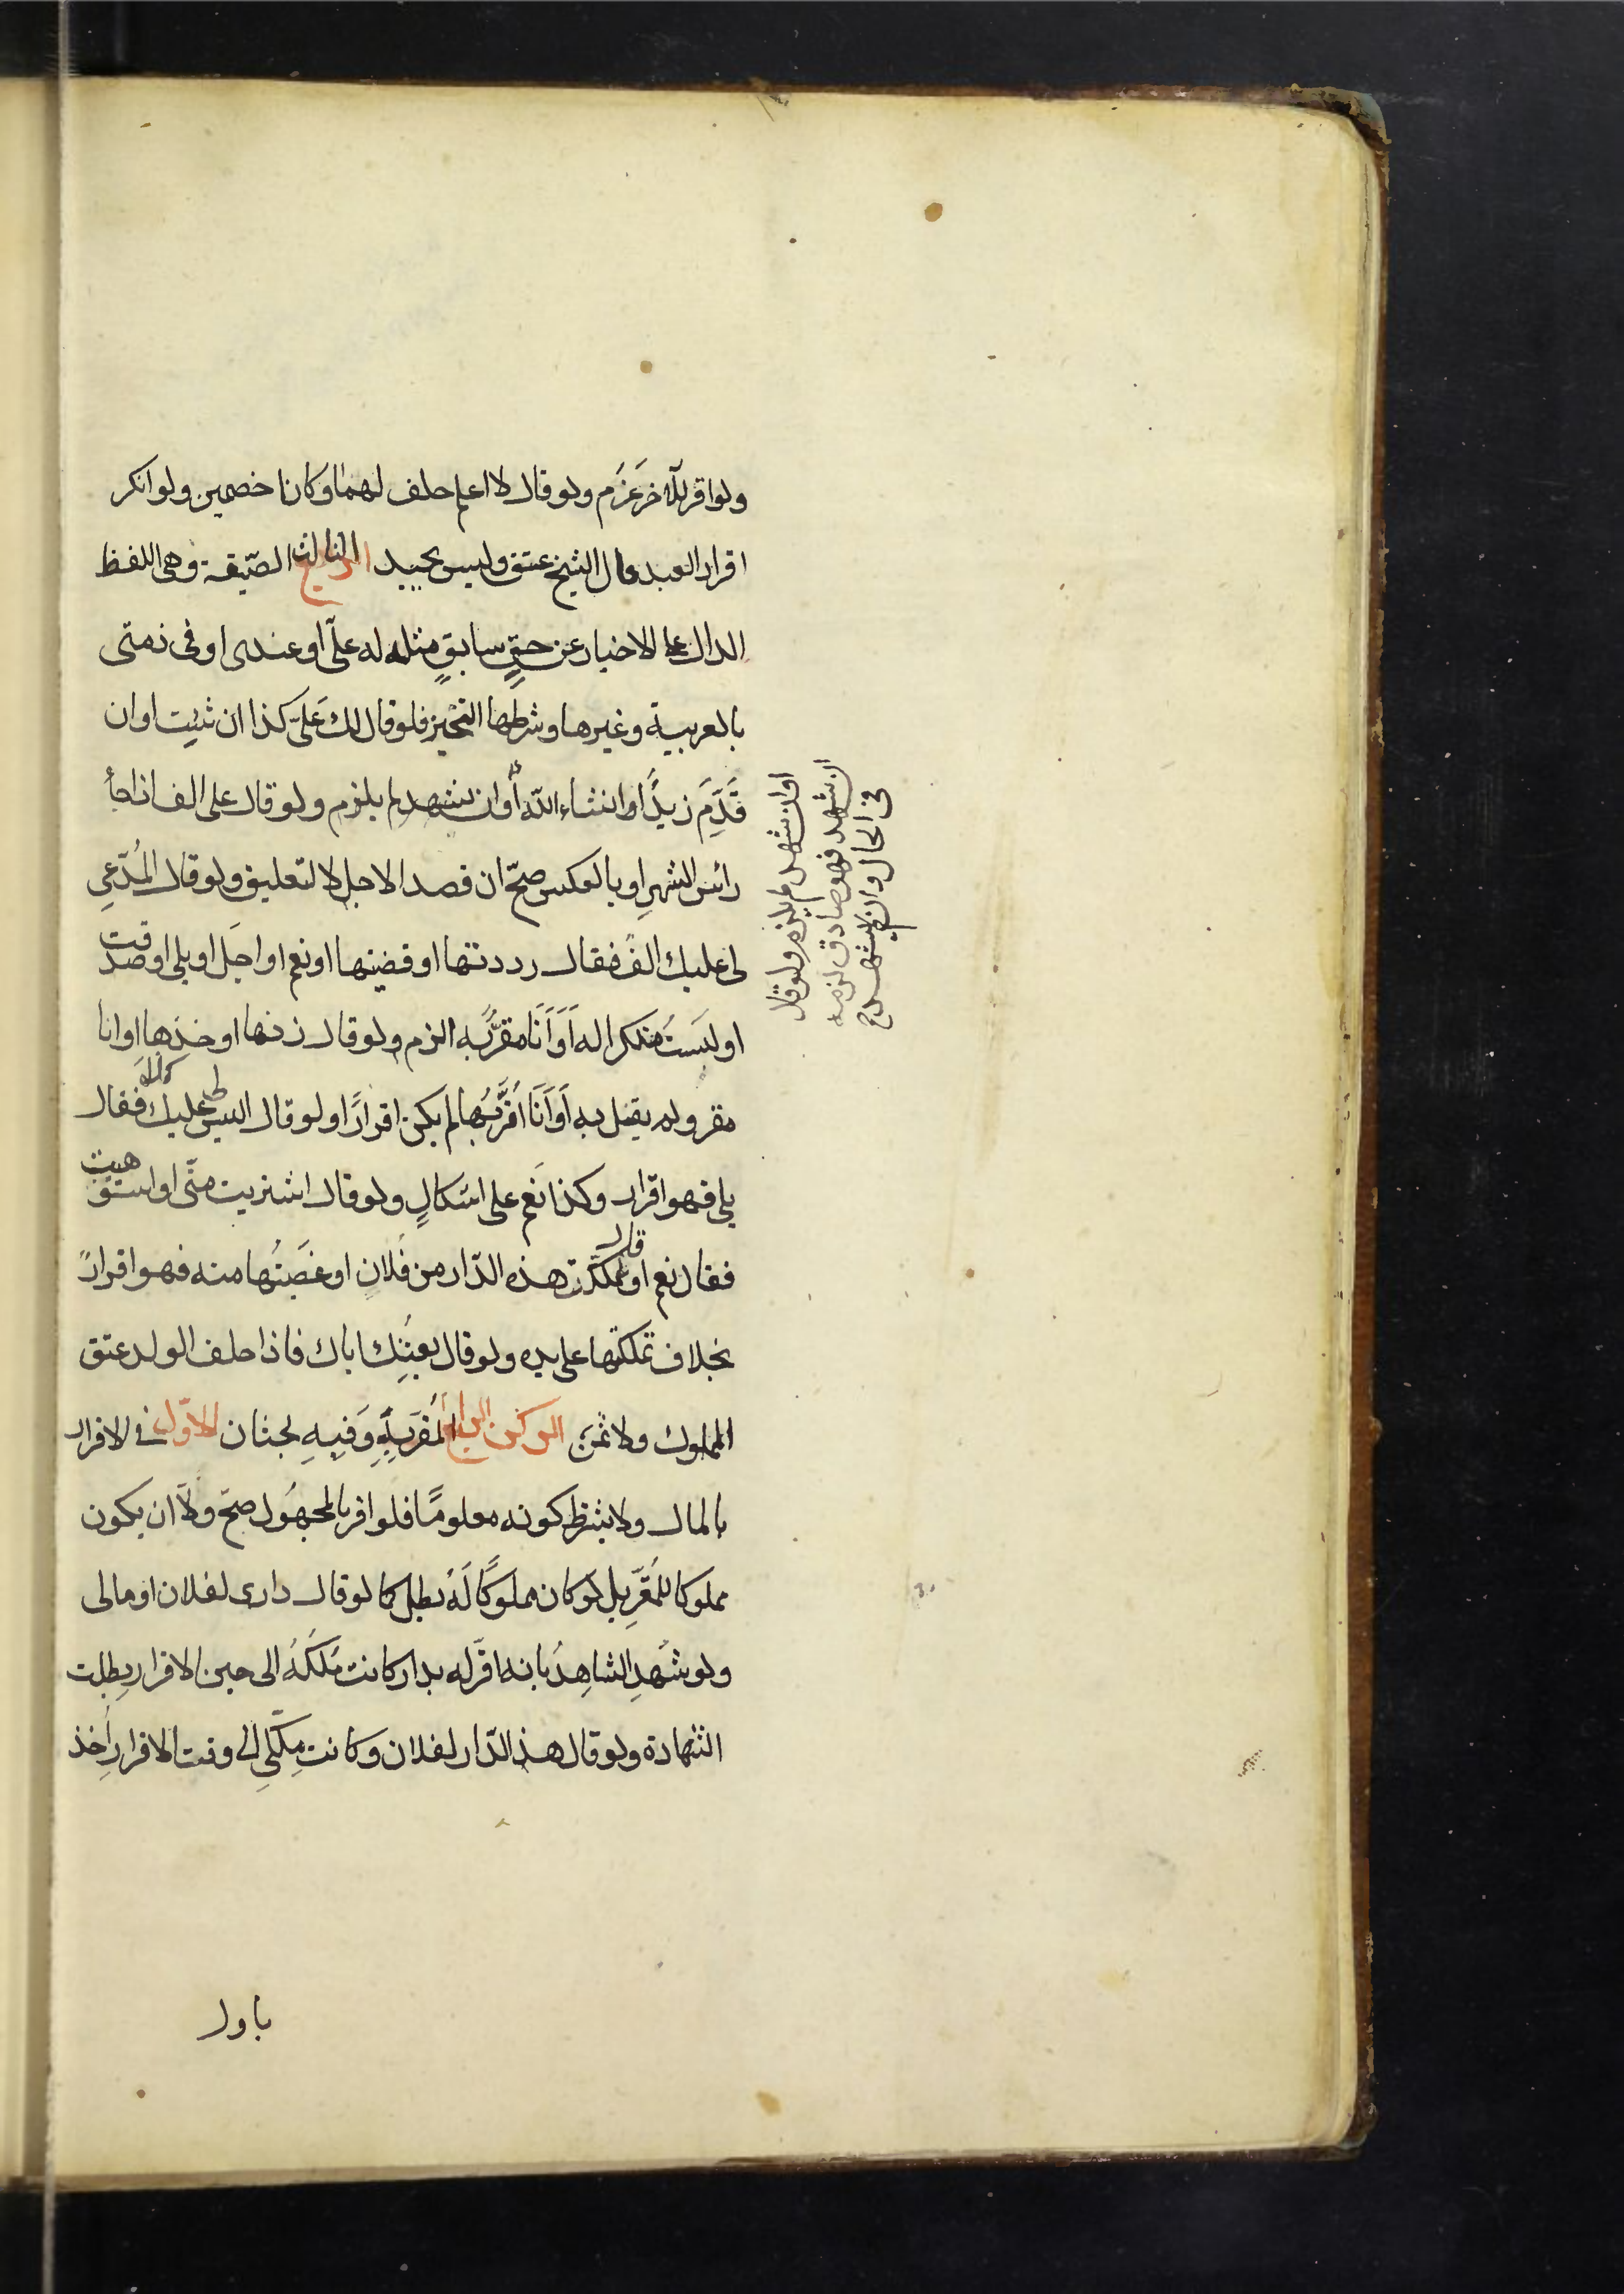 ولو اقر للآخر غَرَم ولو قال لا اعلم حلف لهما وكانا خصمين ولو انكر
اقرار العبد قال الشيخ عتق وليس بجيد الثالث الصّيغة وهى اللفظ
الدال على الاخبار عن حقٍ سابقٍ مثله له علىّ او عندى او فى ذمتى
بالعربية وغيرها وشرطها التنجيز فلو قال لك عَلىّ كذا ان شئِت او ان
قَدِمَ زيدٌ او ان شاء اللّه أو ان شهد لم يلزم ولو قال على الف اذا جاء
رأس الشهرِ او بالعكس صحّ ان قصد الاجل لا التعليق ولو قال المُدّعِى
لى عليك الفٌ فقال رددتها او قضيتها او نعم او اجَل او بلى او صدقت
او لَستُ منكرا له اَوَ اَنَا مقرٌّ به الزم ولو قال زنها او خذها او انا
مقر ولم يقل به اَوَ اَنَا اُقرُّ بها لم يكن اقرارًا ولو قال اليس لى عليك كذا فقال
بلى فهو اقرار وكذا نَعم على اشكالٍ ولو قال اشتريت منّى او استوهبت
فقال نعم او قال تملكت هذه الدّار من فُلانٍ او غَصَبتُها منه فهو اقرارٌ
بخلاف تملكتها على يده ولو قال بعتُك اباك فاذا حلف الولد عتق
المملوك ولا ثمَن الركن الرابع المُقَر بِهِ وَفيهِ بحثان الاوّل فى الاقرار
بالمال ولا يشترط كونه معلومًا فلو اقر بالمجهُول صحّ ولَا ان يكون
مملوكا للمُقَرِّ بل لو كان مملوكًا لَهُ بطل كما لو قال دارى لفلان او مالى
ولو شَهِد الشاهِدُ بانه اقرّ له بدار كانت مُلكَهُ الى حين الاقرارِ بطلت
الشهادة ولو قال هذه الدّار لفلان وكانت مِلكى الى وقت الاقرارِ اُخذ
باول
او ان شهد لم يلزم ولو قال
ان شهد فهو صادق لزمه
فى الحال وان لم يشهد صح